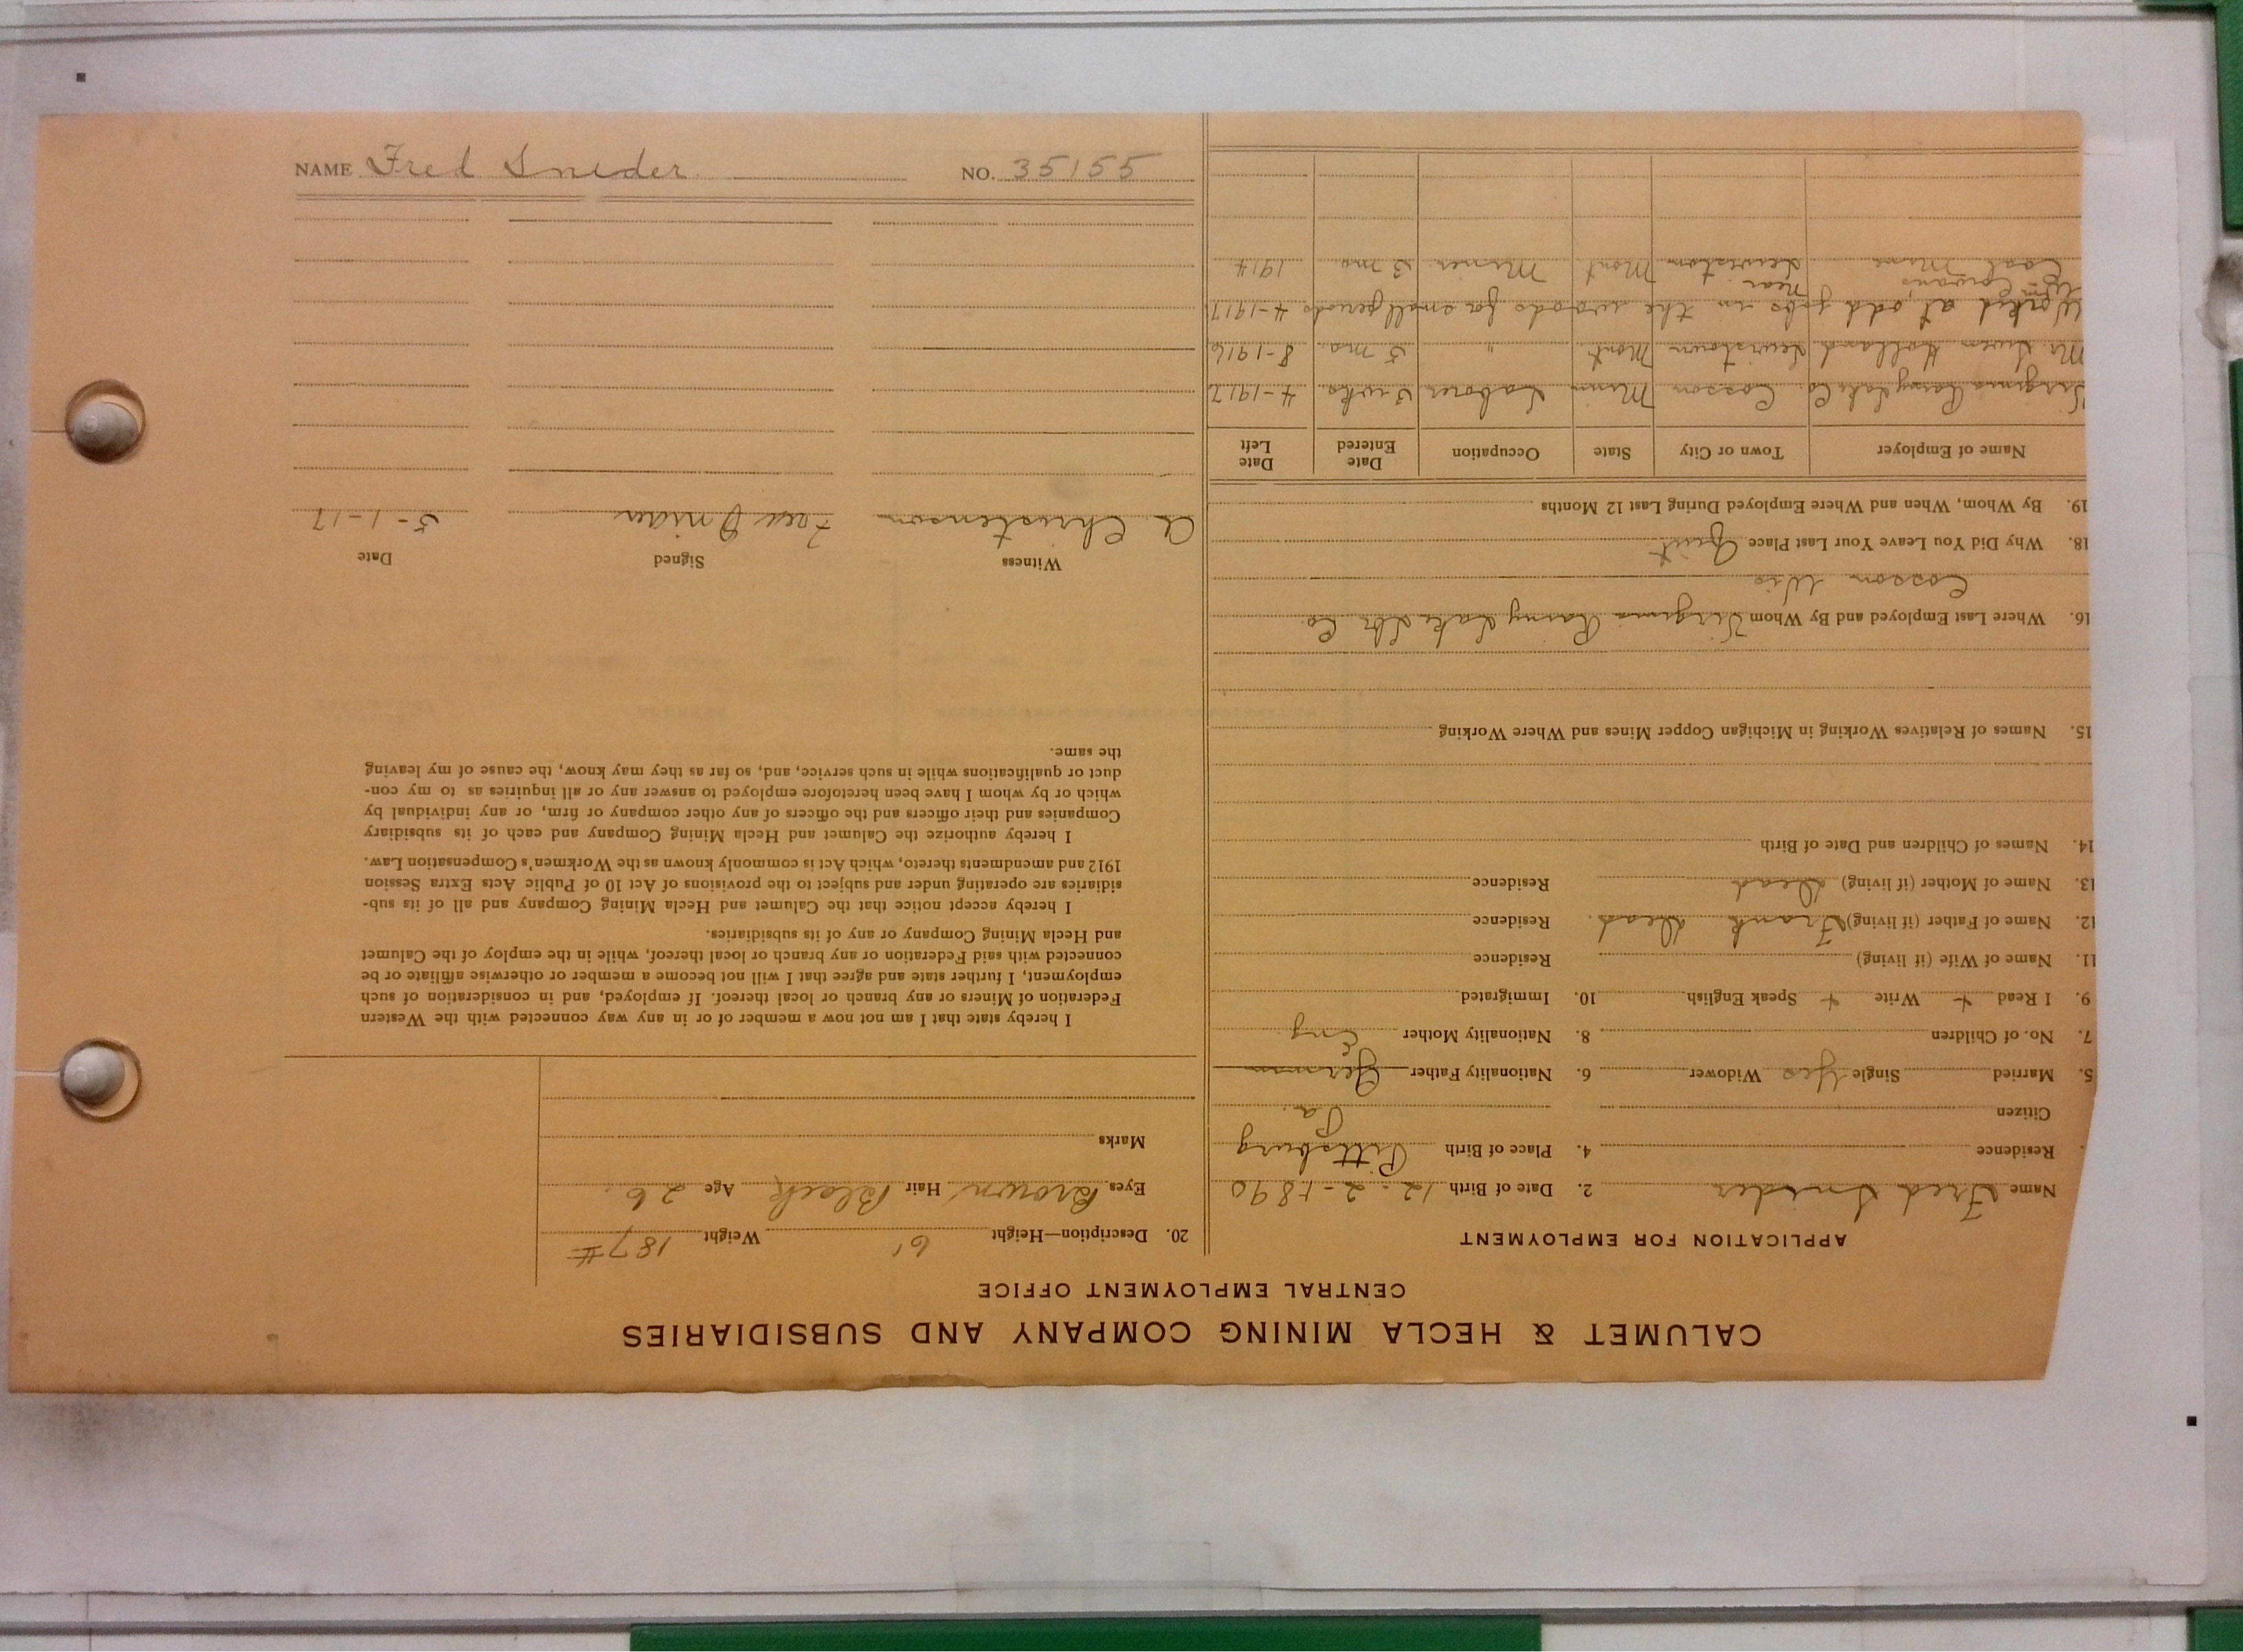 CALUMET & HECLA MINING COMPANY AND SUBSIDIARIES
CENTRAL EMPLOYMENT OFFICE
APPLICATION FOR EMPLOYMENT
Name Fred Snider 2. Date of Birth 12-2-1890
Residence 4. Place of Birth Pittsburg
Citizen Pa.
5. Married Single Yes Widower 6. Nationality Father German
7. No. of Children 8. Nationality Mother Eng
9. I Read + Write + Speak English 10. Immigrated
11. Name of Wife (if living) Residence
12. Name of Father (if living) Frank Dead. Residence
13. Name of Mother (if living) Dead Residence
14. Names of Children and Date of Birth
15. Names of Relatives Working in Michigan Copper Mines and Where Working
16. Where Last Employed and By Whom Virginia Rainy Lake Lbr Co.
Cosson Wis
18. Why Did You Leave Your Last Place Quit
19. By Whom, When and Where Employed During Last 12 Months
Name of Employer Town or City State Occupation Date Entered Date Left
Virginia Rainy Lake Co. Cosson Minn Laborer 3 wks 4-1917
Mr Holland Lewistown Mont " 5 mo. 8-1916
Worked at odd jobs in the woods for small periods 4-1917
near
Coal Mine Lewistown Mont Miner 3 mo 1914
20. Description—Height 6' Weight 187#
Eyes Brown Hair Black Age 26
Marks
I hereby state that I am not now a member of or in any way connected with the Western
Federation of Miners or any branch or local thereof. If employed, and in consideration of such
employment, I further state and agree that I will not become a member or otherwise affiliate or be
connected with said Federation or any branch or local thereof, while in the employ of the Calumet
and Hecla Mining Company or any of its subsidiaries.
I hereby accept notice that the Calumet and Hecla Mining Company and all of its sub-
sidiaries are operating under and subject to the provisions of Act 10 of Public Acts Extra Session
1912 and amendments thereto, which Act is commonly known as the Workmen's Compensation Law.
I hereby authorize the Calumet and Hecla Mining Company and each of its subsidiary
Companies and their officers and the officers of any other company or firm, or any individual by
which or by whom I have been heretofore employed to answer any or all inquiries as to my con-
duct or qualifications while in such service, and, so far as they may know, the cause of my leaving
the same.
Witness Signed Date
A. Christenson Fred Snider 5-1-17
NAME Fred Snider NO. 35155